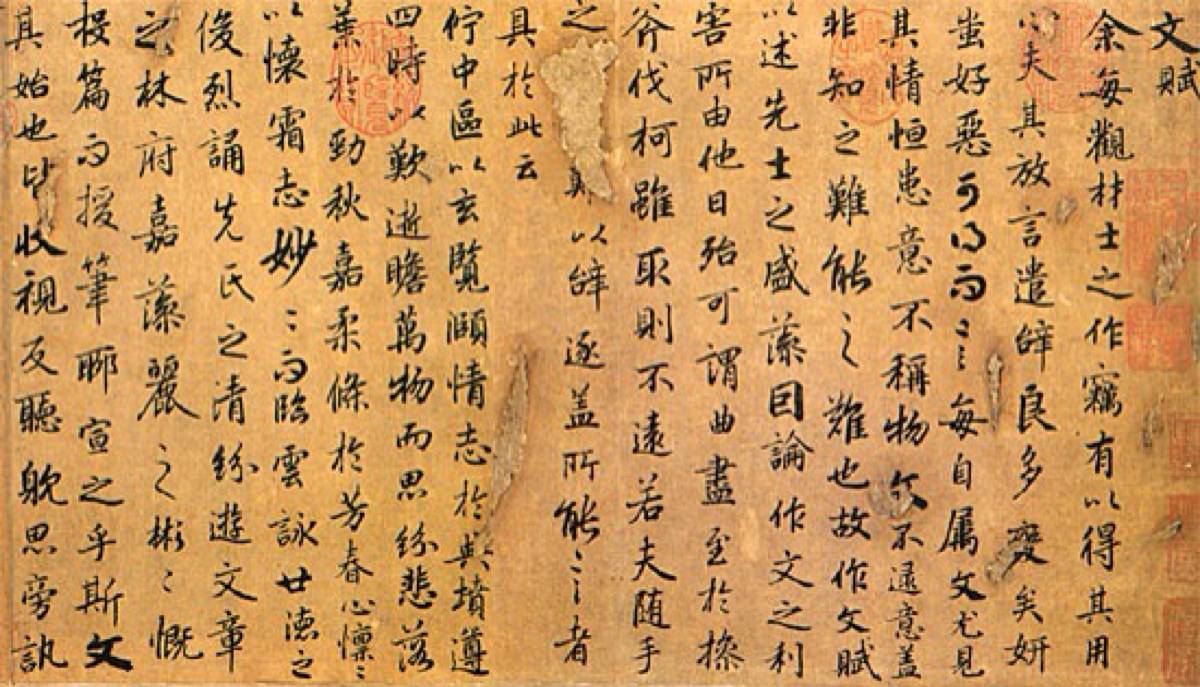 文賦
余每觀材士之作竊有以得其用
心夫其放言遣辭良多變矣妍
蚩好惡可得而言每自属文尤見
其情恒患意不稱物文不逮意盖
非知之難能之難也故作文賦
以述先士之盛藻因論作文之利
害所由他日殆可謂曲盡至於操
斧伐柯雖取則不遠若夫随手
之難以辭逐盖所能言者
具於此云
佇中區以玄覽頤情志於典墳遵
四時以歎逝瞻萬物而思紛悲落
葉於勁秋嘉柔條於芳春心懍〻
以懷霜志妙〻而臨雲詠世德之
俊烈誦先氏之清紛遊文章
之林府嘉藻麗之彬〻慨
投篇而援筆聊宣之乎斯文
其始也皆收視反聽躭思旁訊